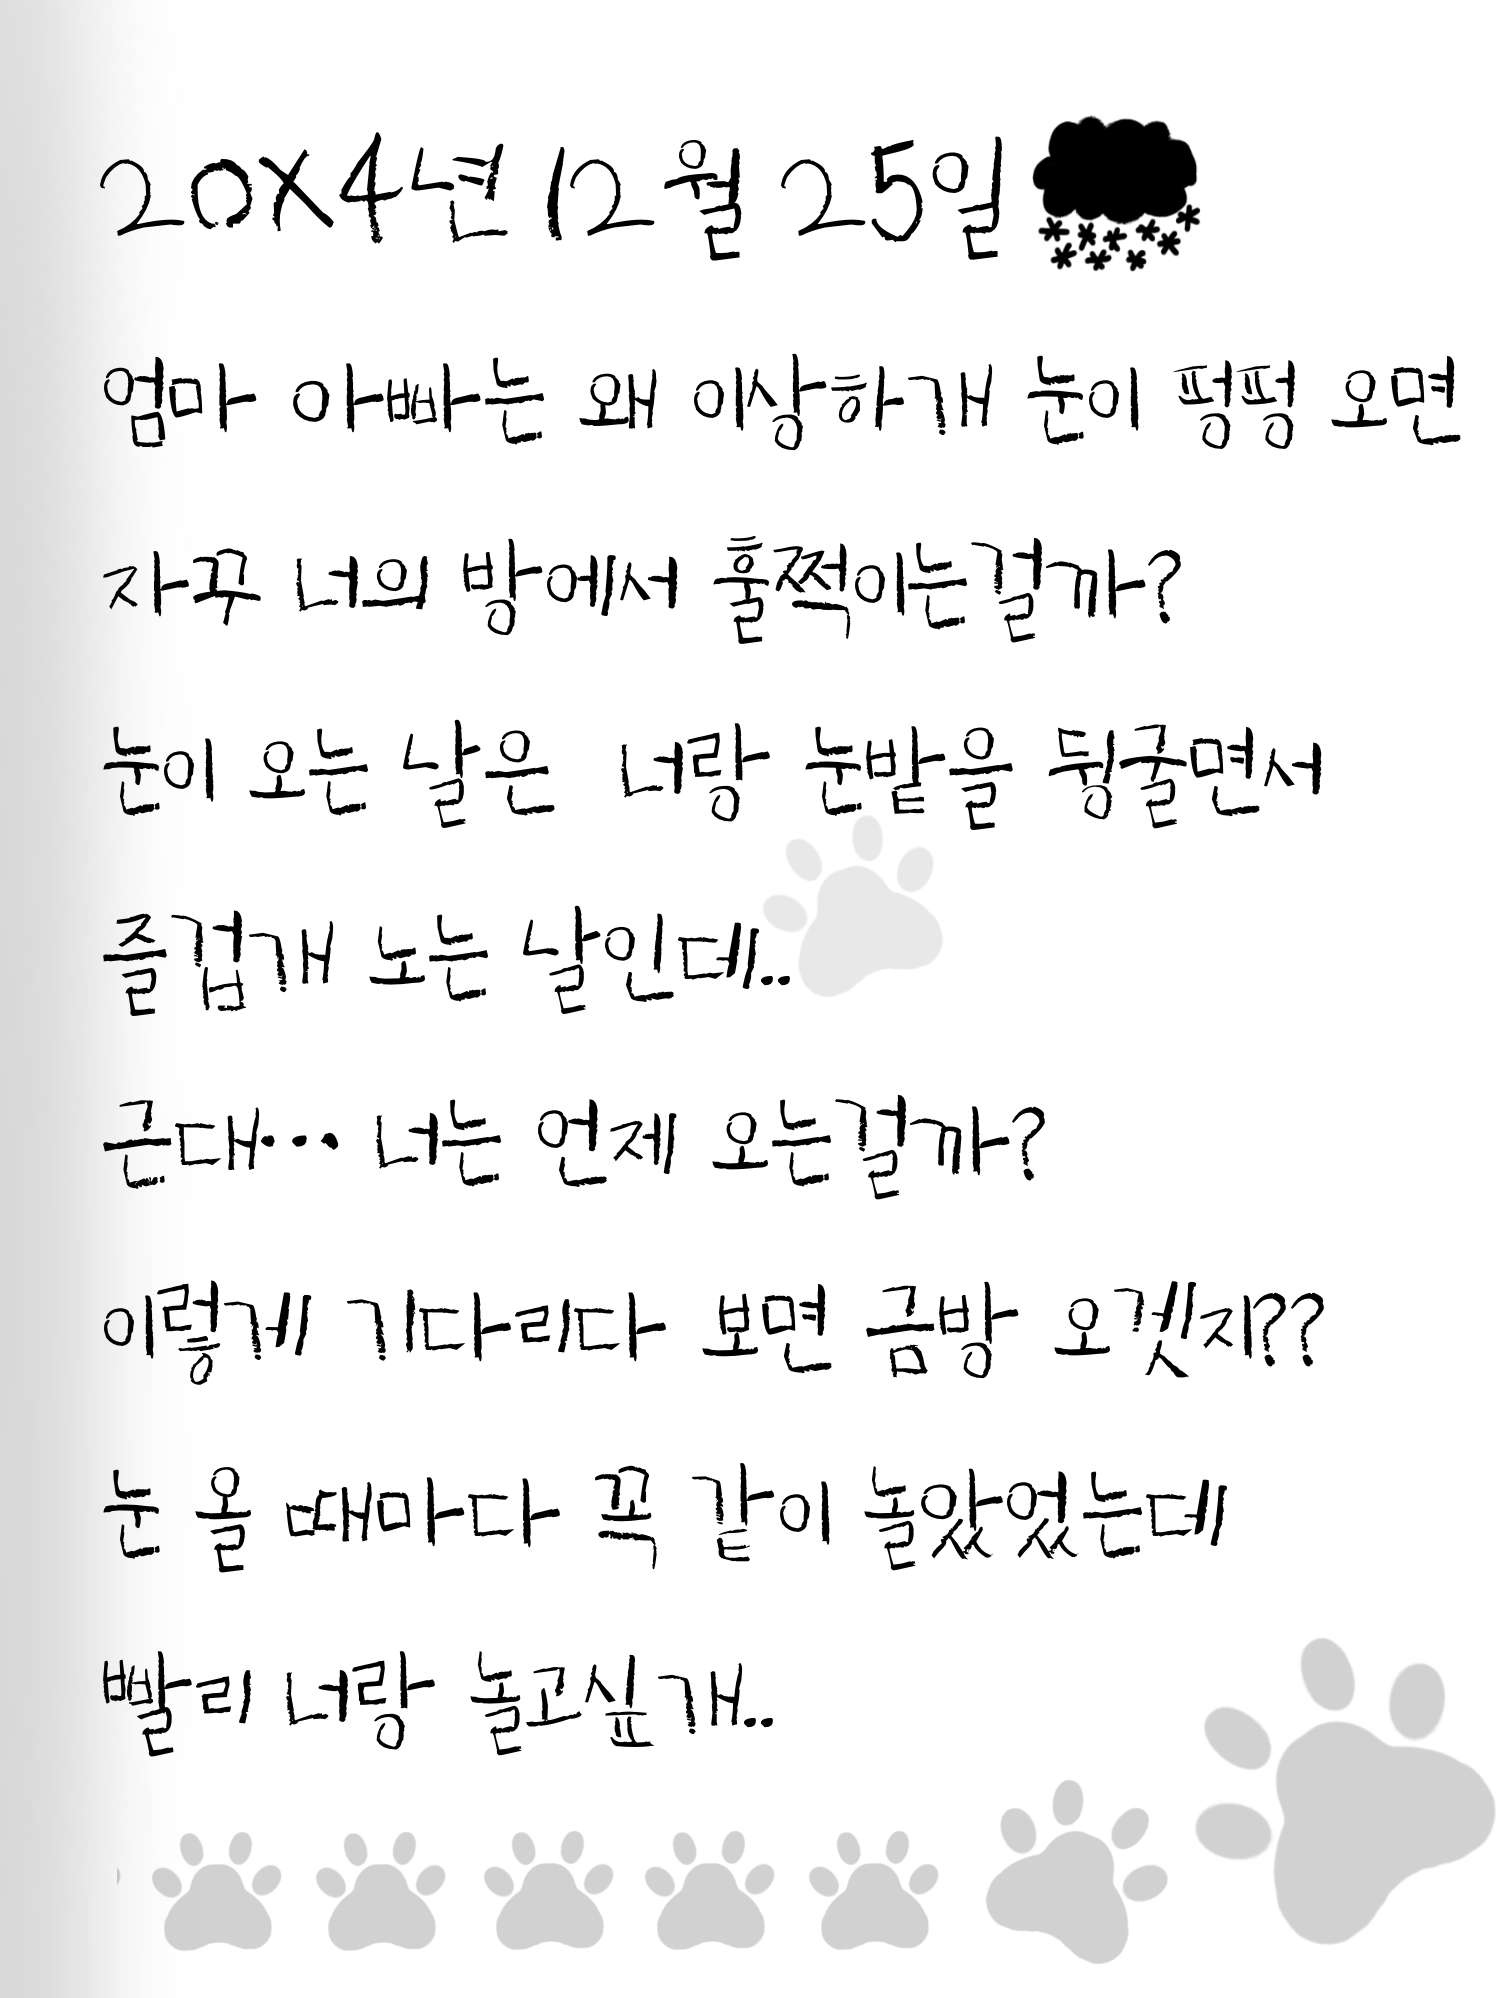 20X4년 12월 25일
엄마 아빠는 왜 이상하개 눈이 펑펑 오면
자꾸 너의 방에서 훌쩍이는걸까?
눈이 오는 날은 너랑 눈밭을 뒹굴면서
즐겁개 노는 날인데..
근대... 너는 언제 오는걸까?
이렇게 기다리다 보면 금방 오겟지??
눈 올 때마다 꼭 같이 놀았었는데
빨리 너랑 놀고싶개..